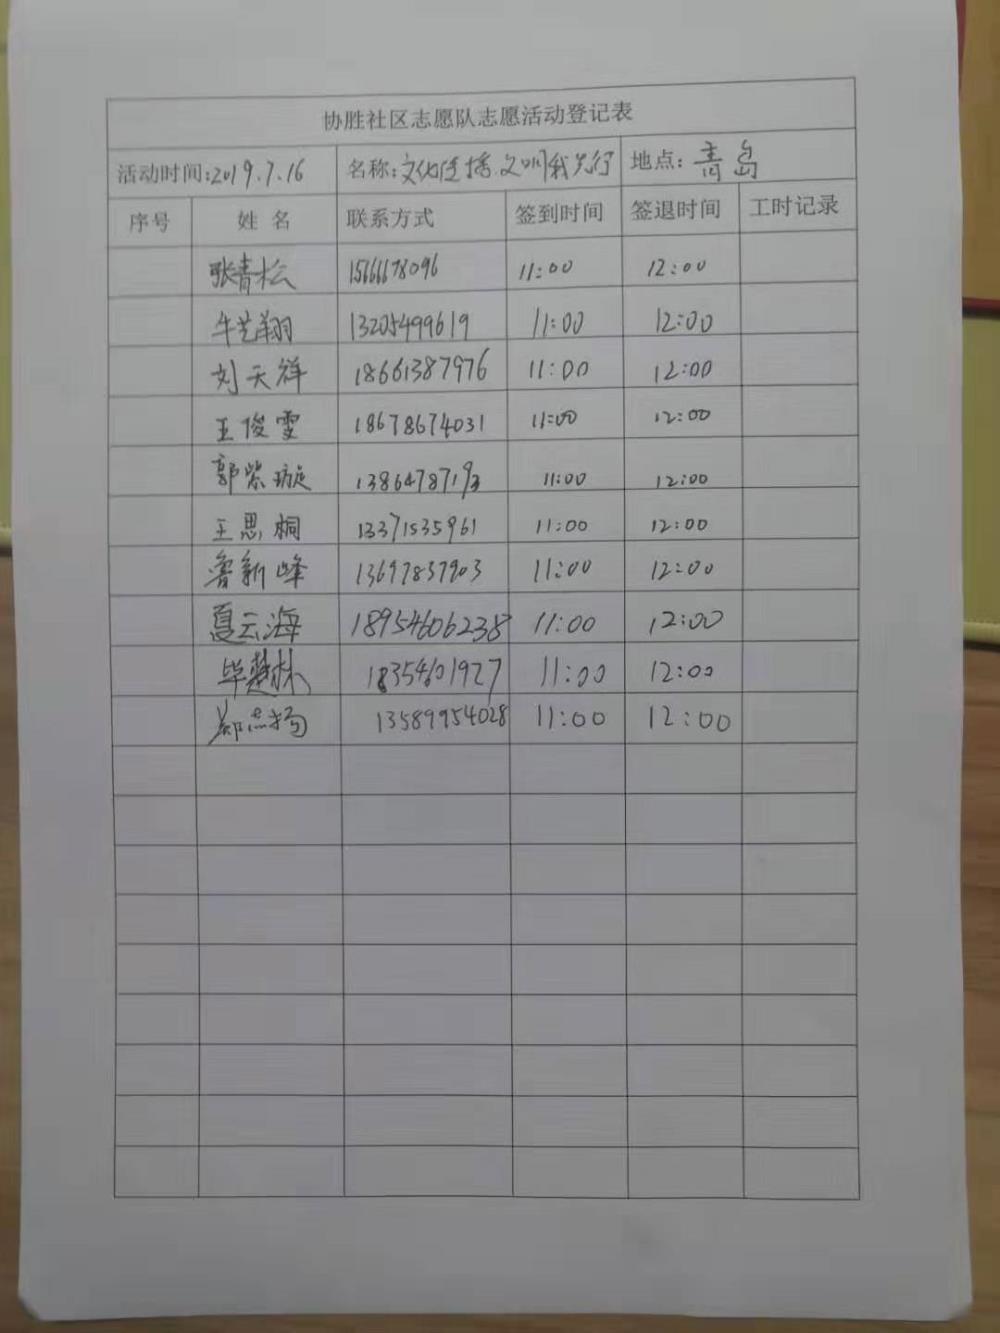 协胜社区志愿队志愿活动登记表
活动时间:2019.7.16 名称:文化传播.文明我先行 地点:青岛
序号 姓名 联系方式 签到时间 签退时间 工时记录
张青松 15666678096 11:00 12:00
牛艺翔 13205499619 11:00 12:00
刘天祥 18661387976 11:00 12:00
王俊雯 18678674031 11:00 12:00
郭紫璇 13864787193 11:00 12:00
王思桐 13371535961 11:00 12:00
鲁新峰 13697857903 11:00 12:00
夏云海 18954606238 11:00 12:00
毕楚林 18354601927 11:00 12:00
郑志扬 13589954028 11:00 12:00